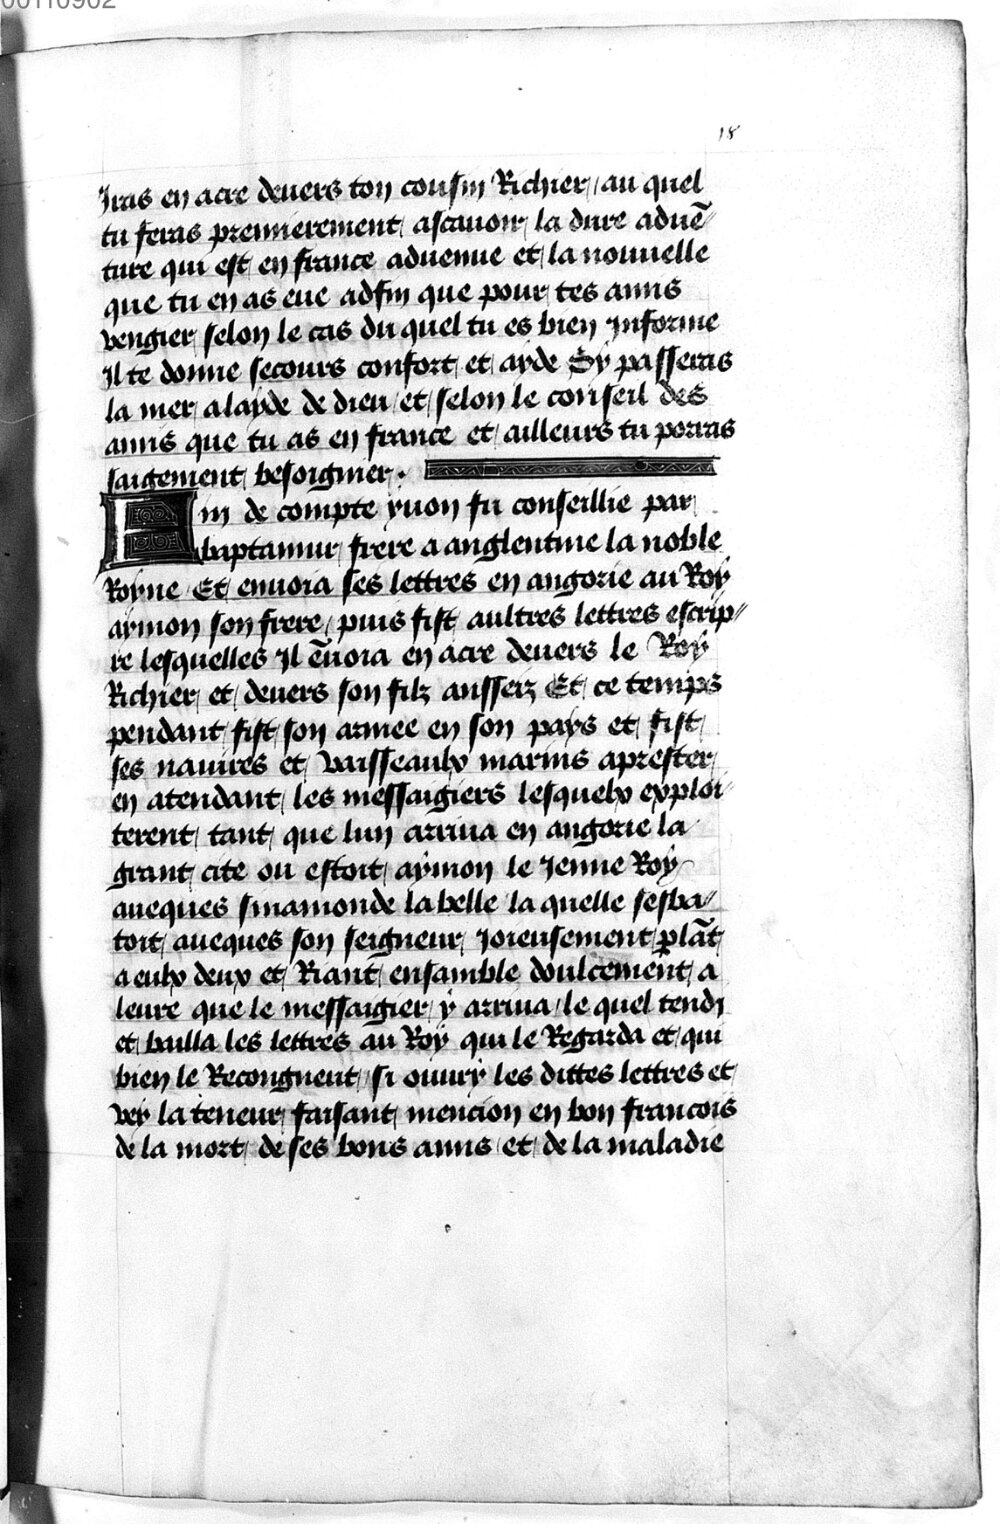 00110902
18
Iras en acre deuers ton cousin Richier / au quel
tu feras premierement ascauoir la dure aduē-
ture qui est en france aduenue et la nouuelle
que tu en as eue adfin que pour tes amis
vengier selon le cas du quel tu es bien Informe
Il te donne secours confort et ayde Sy passeras
la mer a layde de dieu et selon le conseil des
amis que tu as en france et ailleurs tu porras
saigement besoigner .
Fin de compte yuon fu conseillie par
baptamur frere a anglentine la noble
Royne Et enuoia ses lettres en angorie au Roy
aymon son frere / puis fist aultres lettres escrip-
re lesquelles Il ēuoia en acre deuers le Roy
Richier et deuers son filz ausserz Et ce temps
pendant fist son armee en son pays et fist
ses nauires et vaisseaulx marins aprester
en atendant les messaigiers lesquelx exploi-
terent tant que lun arriua en angorie la
grant cite ou estoit aymon le Jenne Roy
auecques sinamonde la belle la quelle sesba-
toit aueques son seigneur Joieusement plāt
a eulx deux et Riant ensamble doulcement a
leure que le messaigier y arriua / le quel tendi
et bailla les lettres au Roy qui le Regarda et qui
bien le Recongneut si ouury les dittes lettres et
vey la teneur faisant mencion en bon francois
de la mort de ses bons amis et de la maladie